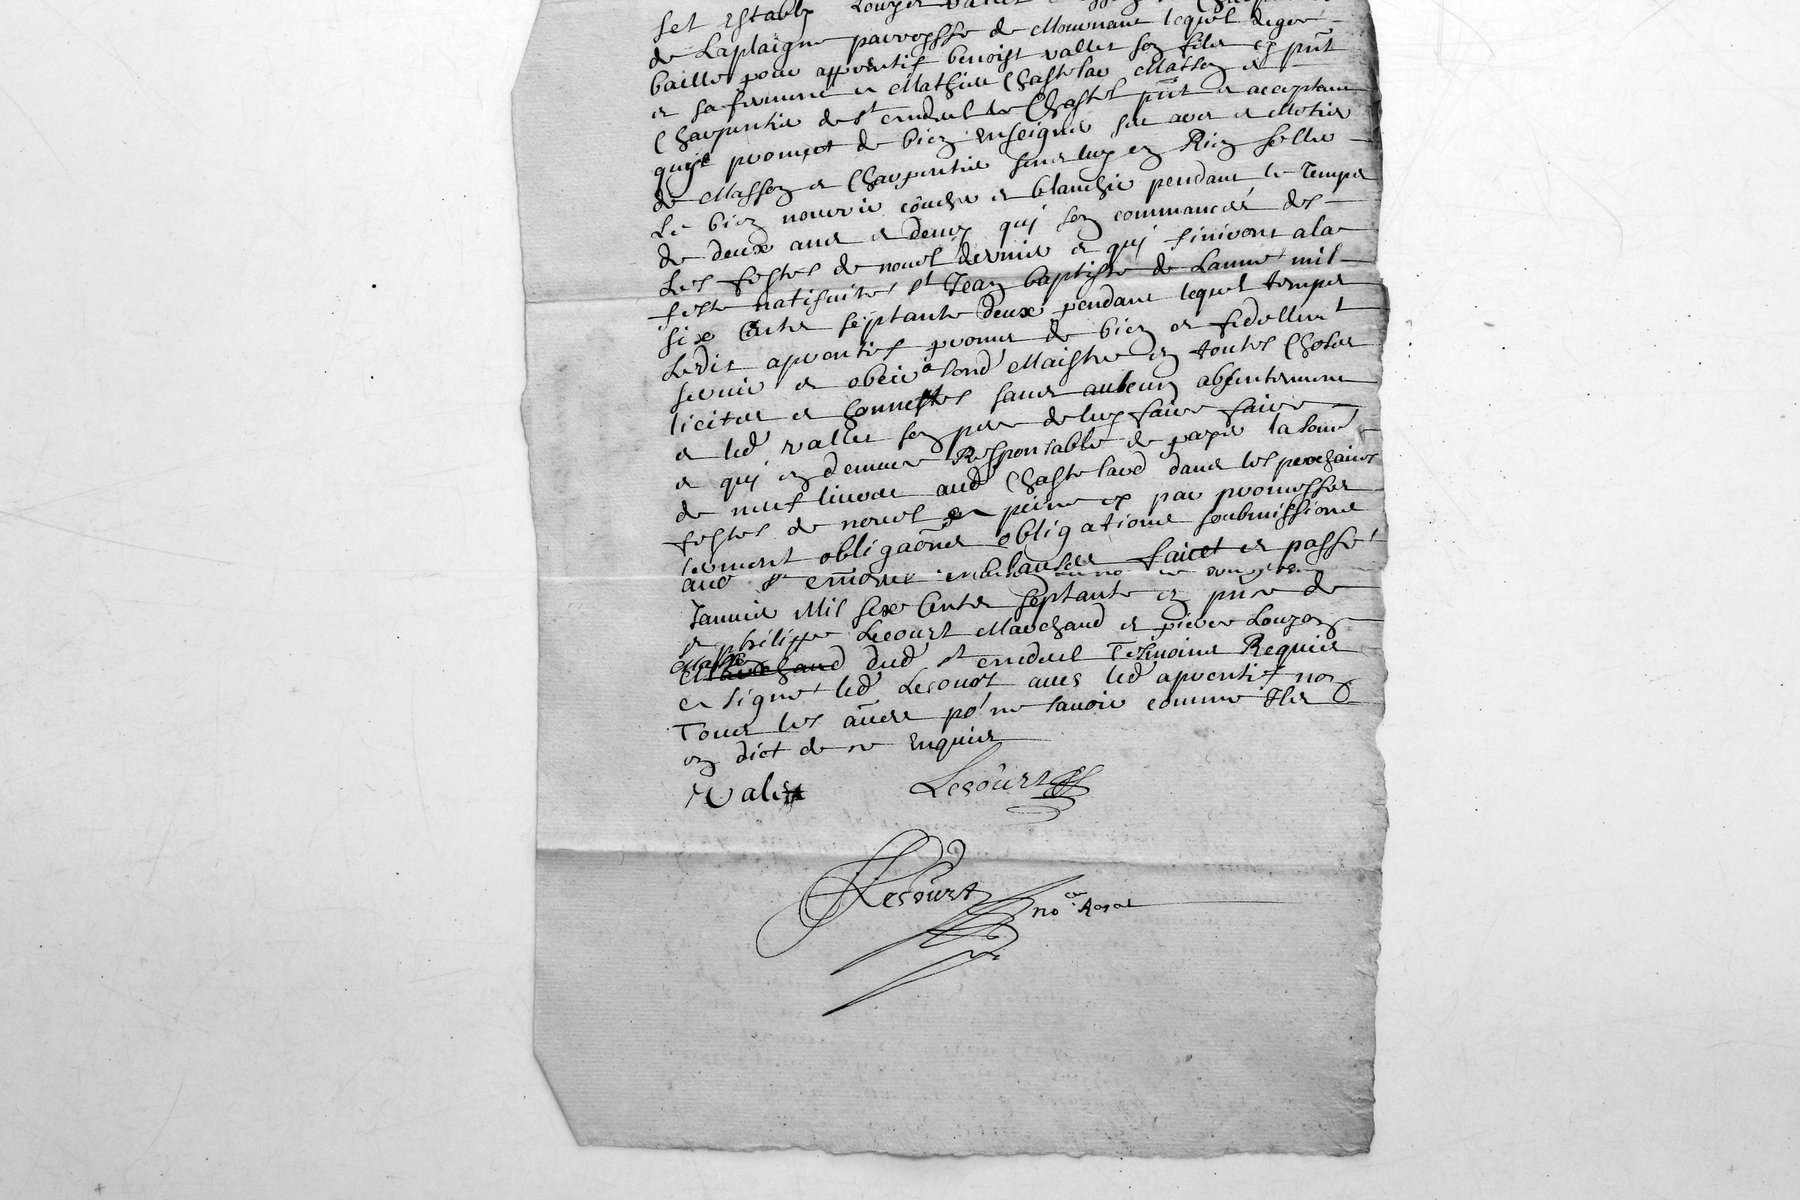 set estably Louys Vallet
de Laplaigne parroysse de Mournant lequel de gre
baille pour apprentif benoist vallet son filz cy pnt
a sa femme a Mathieu Chastelar Masson et
Charpentier de st enduel le Chastel pnt et acceptant
qui promect de bien enseigner son art et Metier
de Masson et Charpentier sans luy en Rien seller
Le bien nourrir coucher et blanchir pendant le Temps
de deux ans et demy quj son commancés des
Les festes de nouel dernier et quj finiront a la
feste natifuites st Jean baptiste de Lanne mil
six Cents septante deux pendant lequel temps
Ledit aprentif promet de bien et fidellemt
seruir et obeir a sond Maistre en toutes Choses
licites et honnestes sans aulcun absentement
et led vallet son pere de luy faire faire
et quj en demeure Responsable de payer la some
de neuf liures aud Chastelard dans les prochaines
festes de nouel a peine et par promesses
serment obligaons obligations soubmissions
aud st clauses faict et passé
Januier Mil six Cents septante en pnce de
st philippe Lecourt Marchand et pierre Louyon
Masson dud st enduel Tesmoins Requis
et signe led Lecourt auec led aprentif non
Tous les aues po ne sauoir comme Ils
on dict de ce enquis
Valet Lecourt
Lecourt no.re Royal